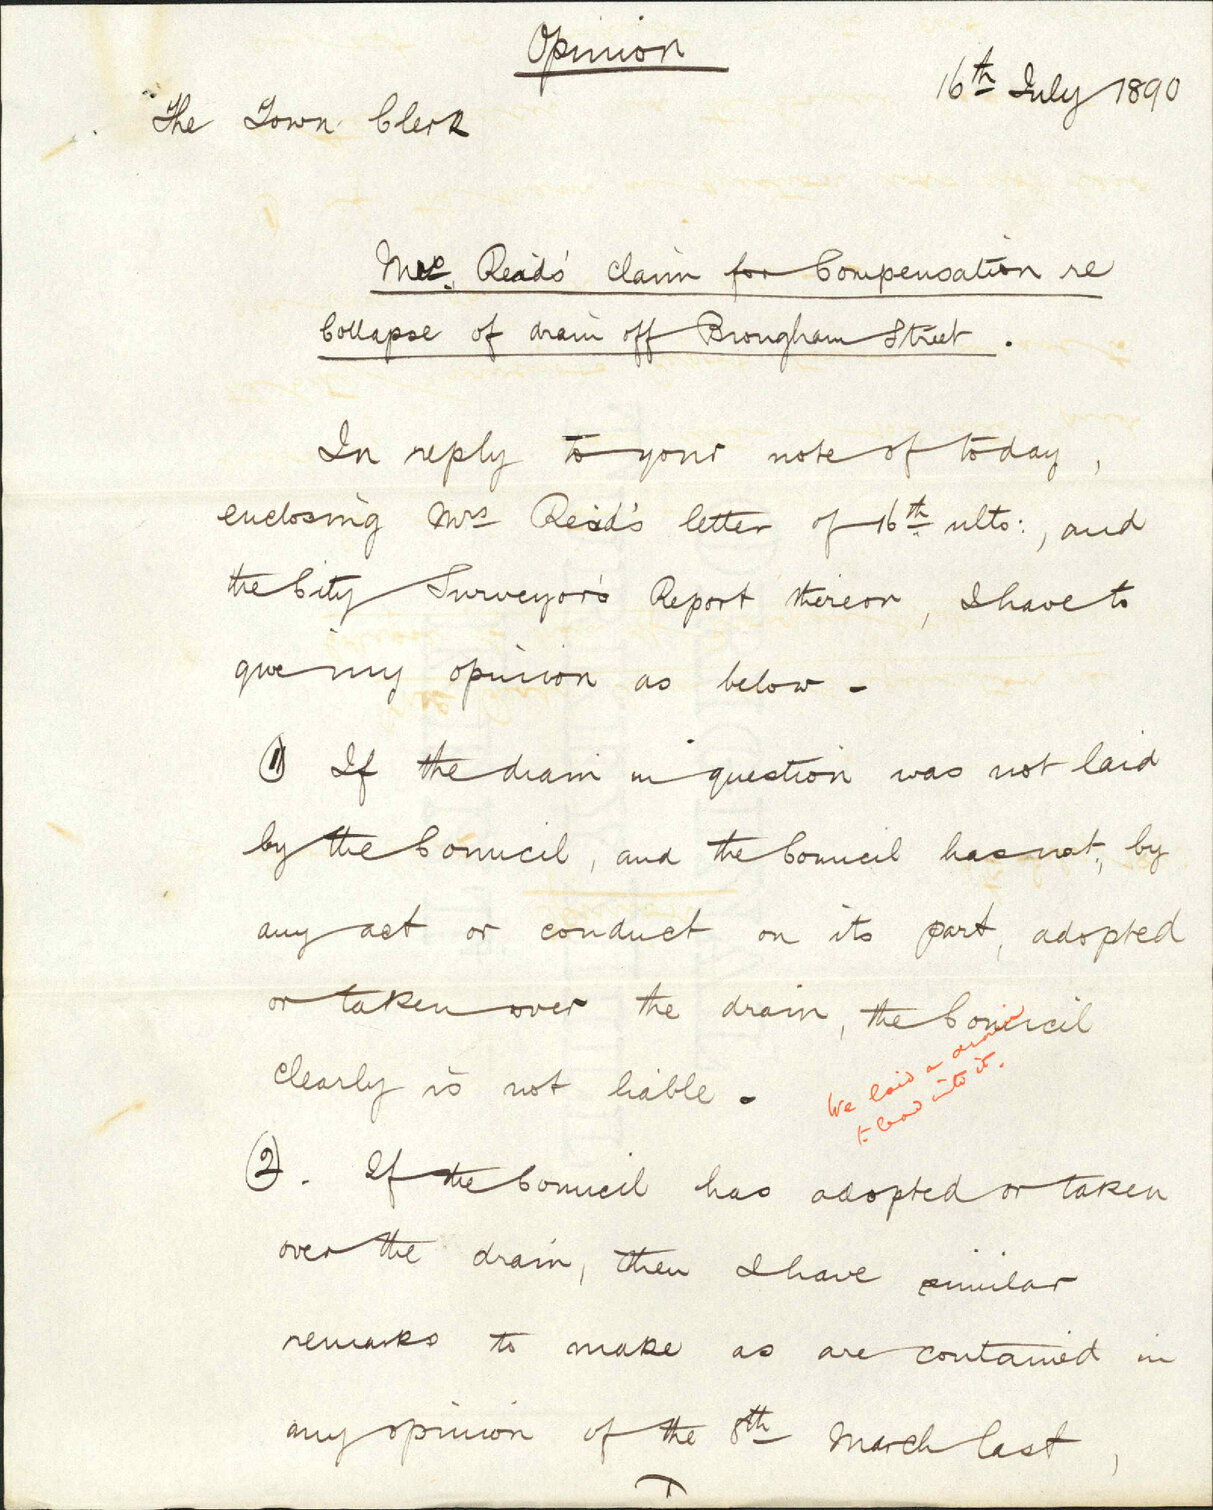 Opinion
16th July 1890
The Town Clerk
Mrs. Reid's claim for Compensation re
Collapse of drain off Brougham Street.
In reply to your note of today,
enclosing Mrs Reid's letter of 16th ulto:, and
the City Surveyor's Report thereon, I have to
give my opinion as below -
(1) If the drain in question was not laid
by the Council, and the Council has not, by
any act or conduct on its part, adopted
or taken over the drain, the Council
clearly is not liable -
We laid a drain
to lead into it.
(2). If the Council has adopted or taken
over the drain, then I have similar
remarks to make as are contained in
my opinion of the 8th March last,